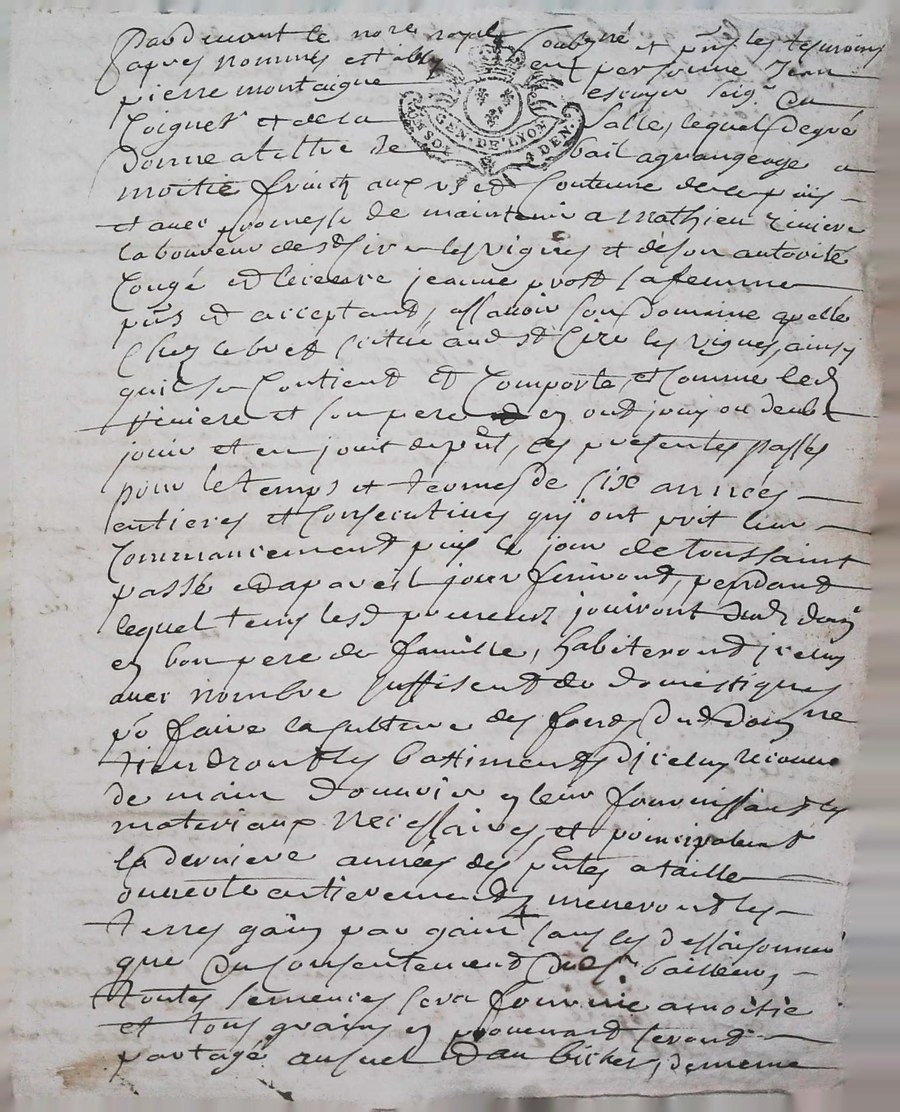 Pardevant le no.re royal soubzné et pnts les tesmoins
apres nommés estably en personne Jean
pierre montaigne escuyer seig.r du
Poignet et de la Salle, lequel de gré
donne a tiltre de bail a grangeage a
moitié fruitz aux us et coutume de ce pais
et avec promesse de maintenir a mathieu riviere
laboureur de st Sire les vignes et de son autorité
congé et licence jeanne prost sa femme
pnts et acceptant, assavoir son domaine quelle
situé aud st Cire les vignes, ainsy
quil se contient et comporte, et comme led
riviere et son pere en ont jouy ou deub
jouir et en jouit a pnt, ces presentes passés
pour le temps et termes de six années
entieres et consecutives qui ont prit leur
commancement puis le jour de toussaint
passé et a pareil jour finiront, pendant
lequel tems lesd preneurs jouiront dud dom
en bon pere de famille, habiteront iceluy
avec nombre suffisent de domestiques
po faire la culture des fonds dud dom ne
tiendront les battiments diceluy
de main douvrier en leur fournissant les
materiaux necessaires, et principalement
la derniere années des pntes a taille
ouverte entierement, meneront les
terres gain par gain sans les dessaisonner
que du consentement dud s.r bailleur,
toutes semences sera fournie a moitié
et tous grains en provenant seront
partagé au bichet, de meme
GEN. DE LYON
4 DEN.